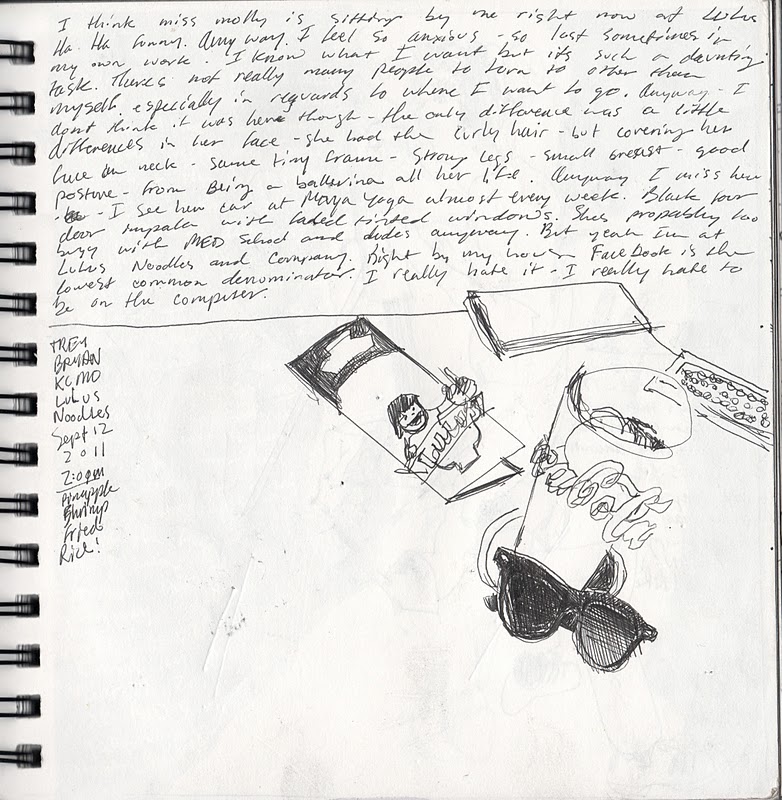 I think miss molly is sitting by me right now at Lulus
Ha. Ha funny. Anyway. I feel so anxious - so lost sometimes in
my own work. I know what I want but its such a daunting
task. Theres not really many people to torn to other than
myself especially in reguards to where I want to go. Anyway - I
dont think it was here though - the only difference was a little
differences in her face - she had the curly hair - but covering her
face on neck - same tiny frame - strong legs - small breast - good
postore - from Being a ballerina all her life. Anyway I miss her
- I see her car at Maya yoga almost every week. Black four
door impala with faded tinted windows. Shes propably too
busy with MED School and dudes anyway. But yeah Im at
Lulus Noodles and Company. Right by my house. FaceBook is the
lowest common denominator. I really hate it - I really hate to
be on the computer.
TREY
BRYAN
KCMO
LULUS
Noodles
Sept 12
2011
2:00pm
Pineapple
Shrimp
Fried
Rice!